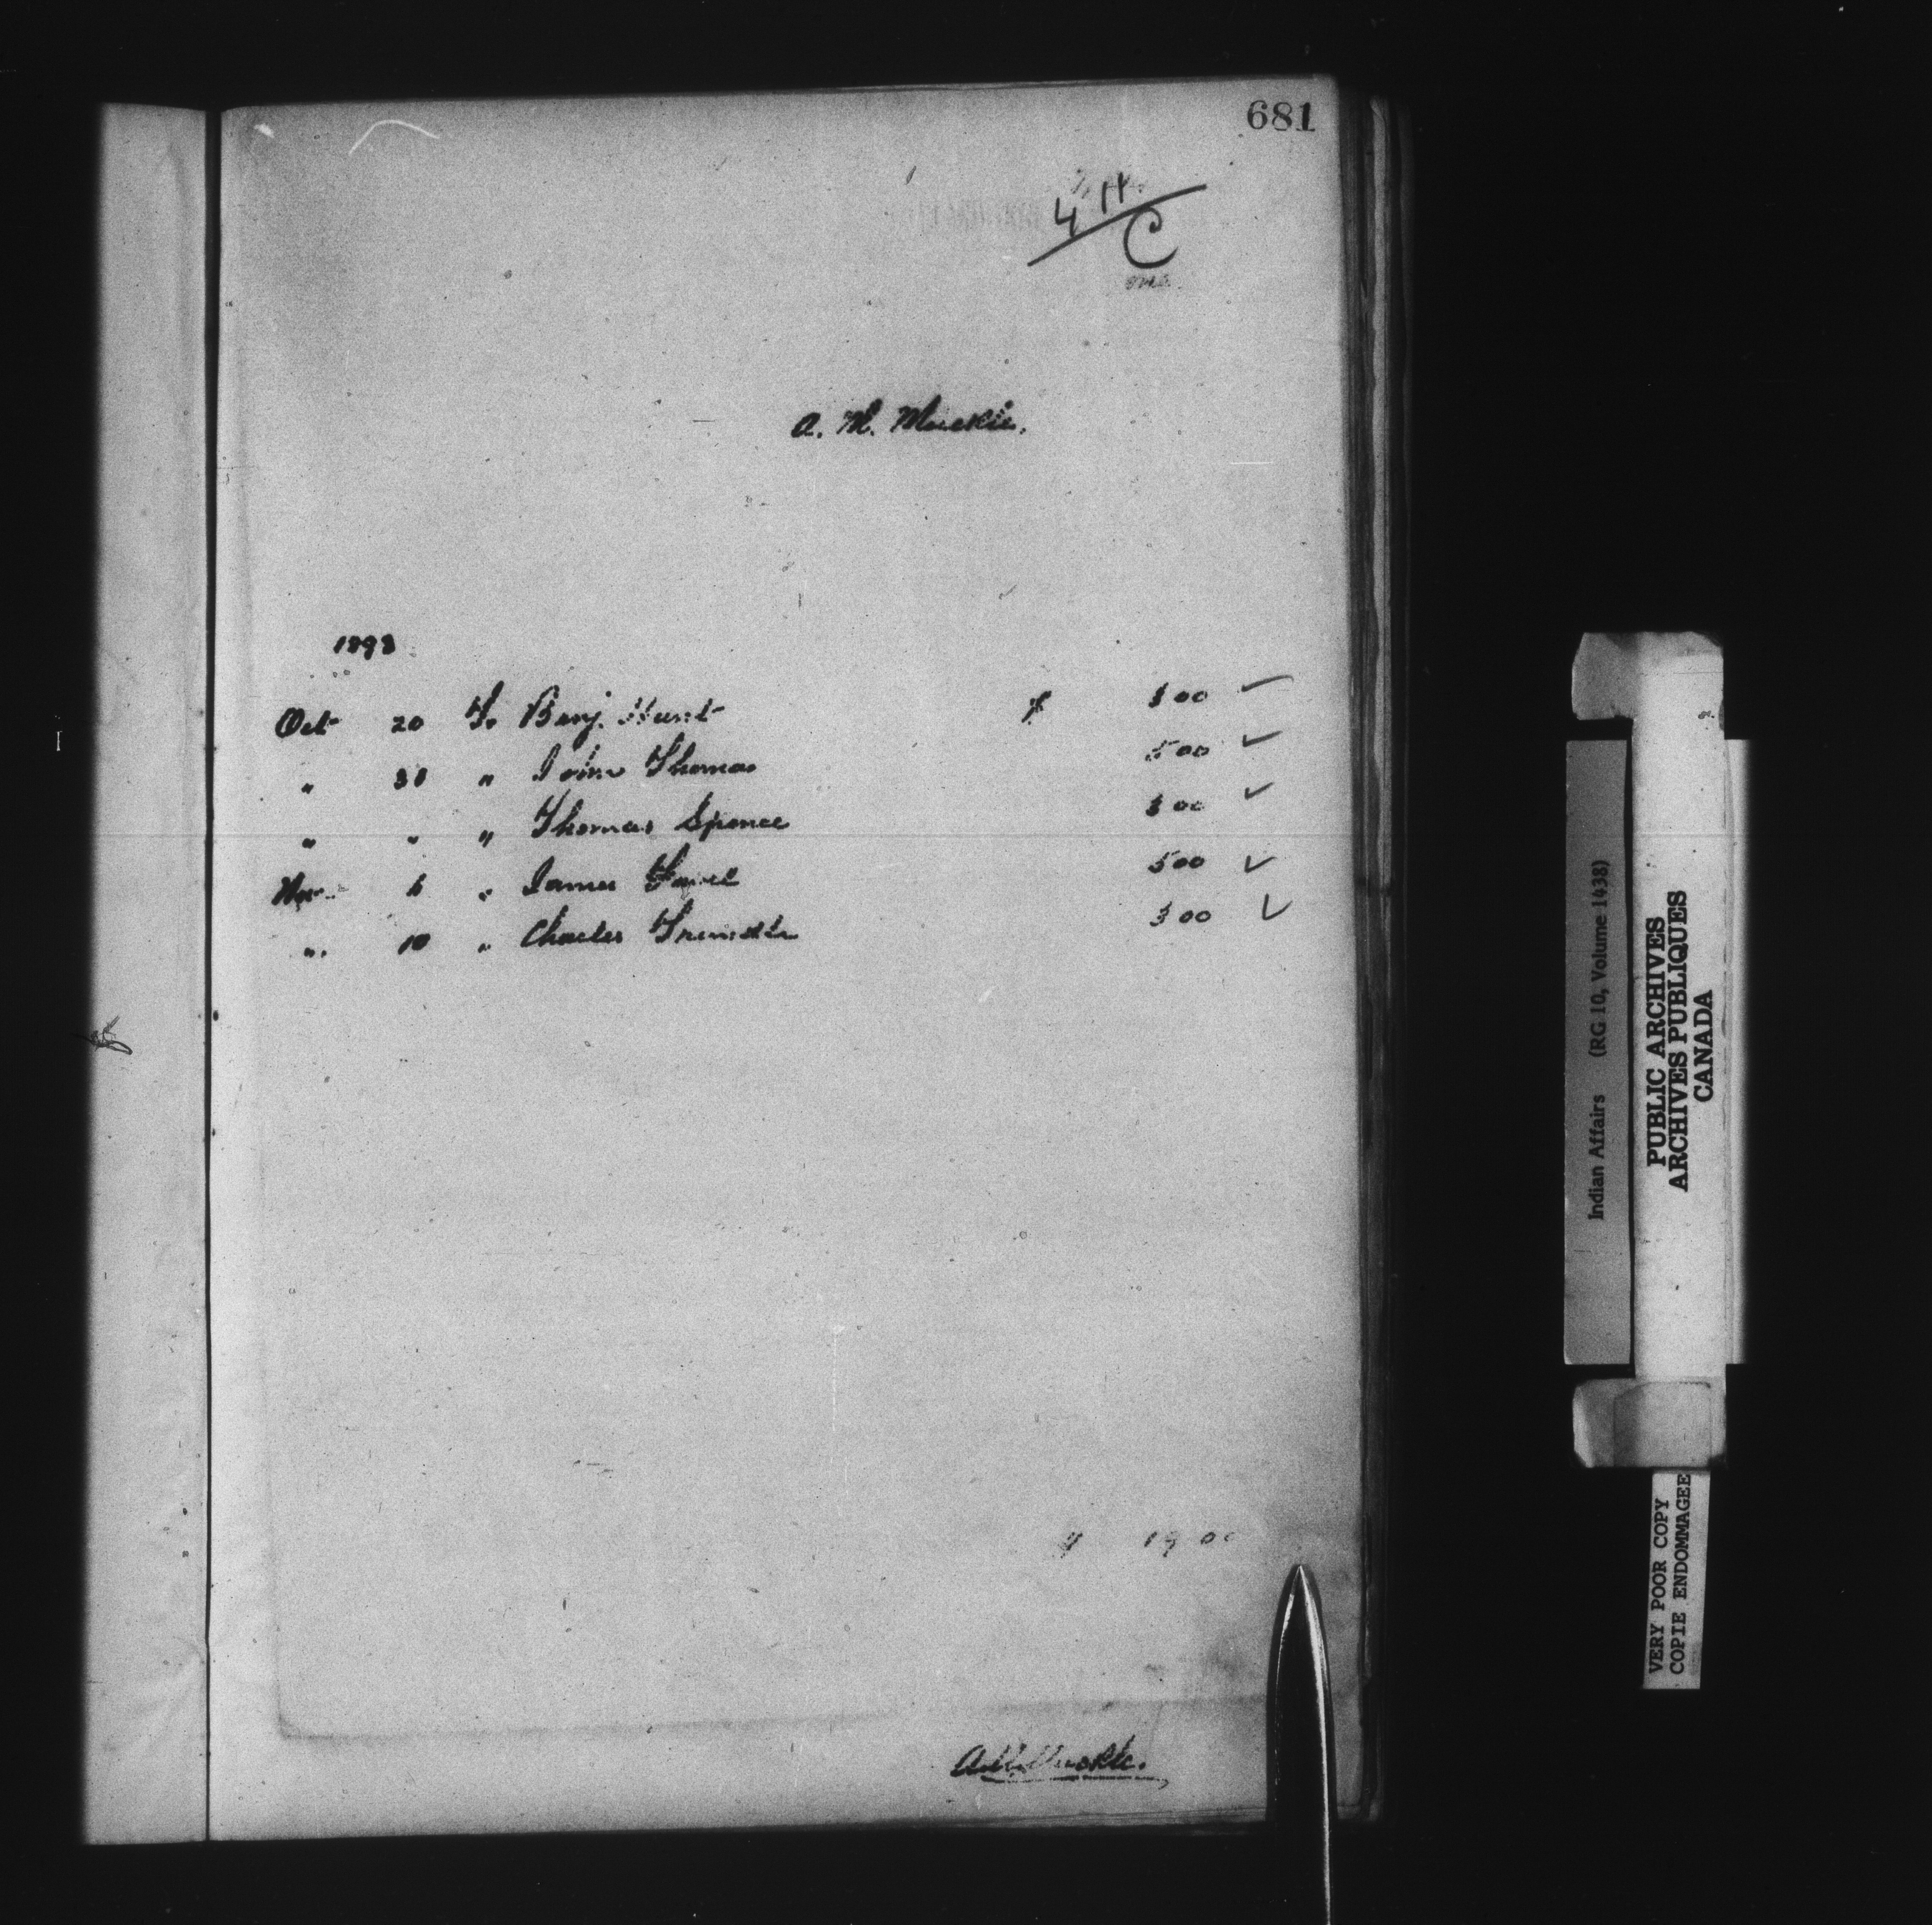 681
4 H
C
A. M. Muckle.
1893
Oct 20 To Benj. Hunt $ 3 00 ✓
" 30 " John Thomas 5 00 ✓
" " " Thomas Spence 3 00 ✓
Nov 6 " James 5 00 ✓
" 10 " Charles 3 00 ✓
$ 19 00
A. M. Muckle.
Indian Affairs (RG 10, Volume 1438)
PUBLIC ARCHIVES
ARCHIVES PUBLIQUES
CANADA
VERY POOR COPY
COPIE ENDOMMAGEE